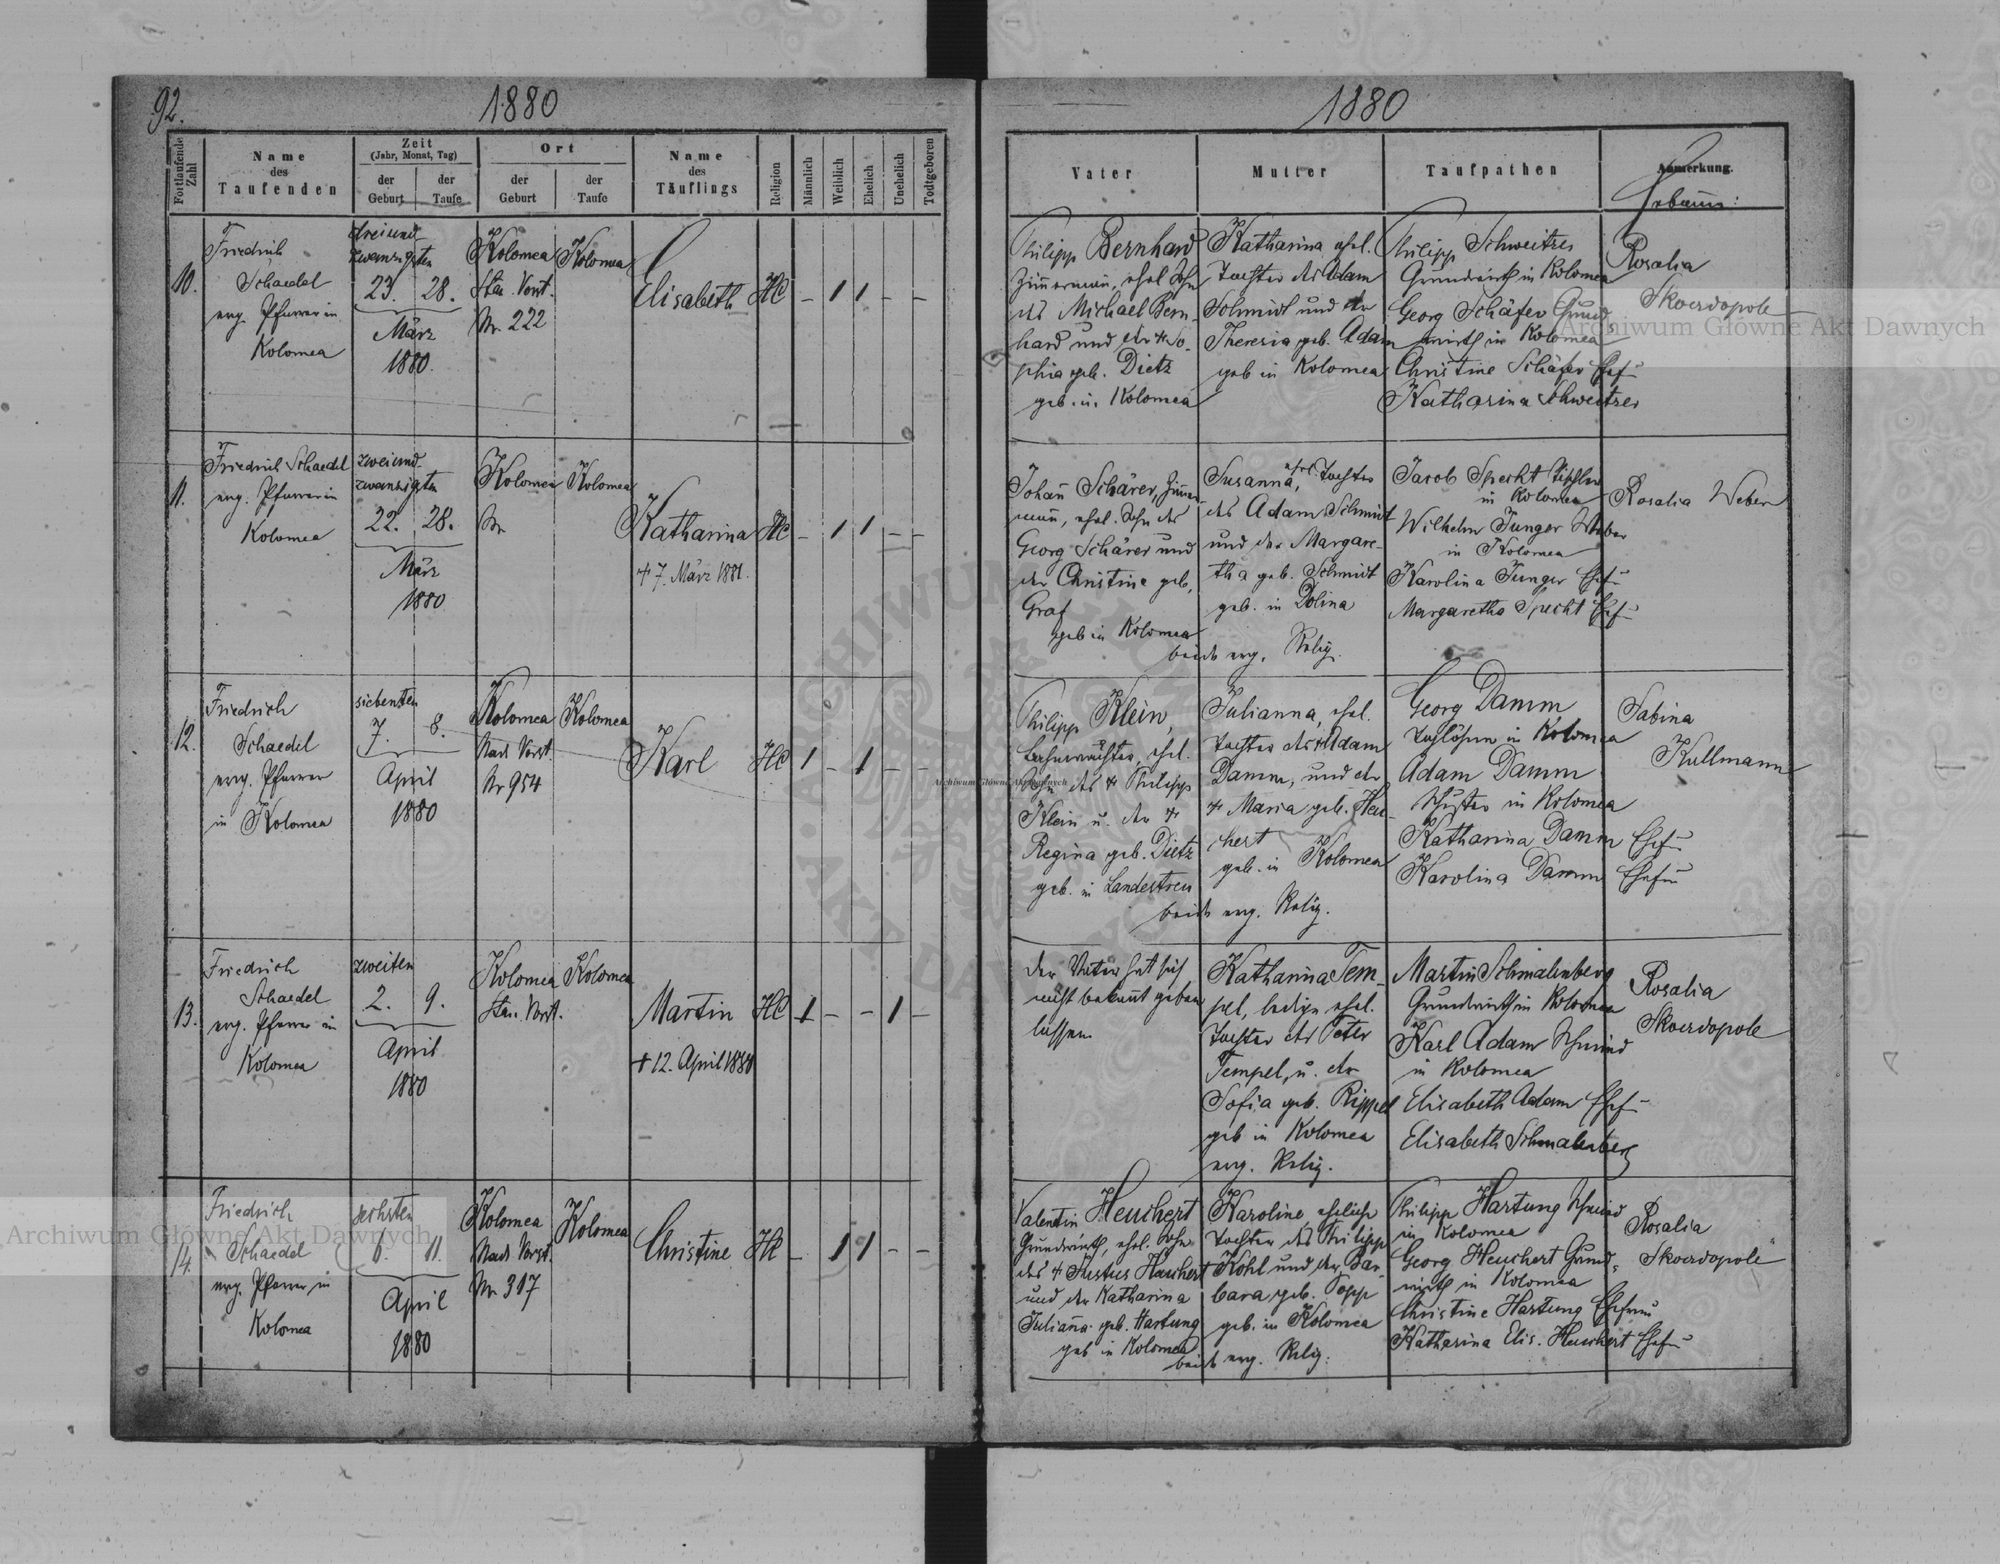 92.
1880
Fortlaufende Zahl
Name des Taufenden
Zeit
(Jahr, Monat, Tag)
der Geburt
der Taufe
Ort
der Geburt
der Taufe
Name des Täuflings
Religion
Männlich
Weiblich
Ehelich
Unehelich
Todtgeboren
10.
Friedrich
Schaedel
evg. Pfarrer in
Kolomea
dreiund-
zwanzigsten
23. 28.
März
1880.
Kolomea
Vorst.
Nr. 222
Kolomea
Elisabeth
HC
– 1 1 – –
11.
Friedrich Schaedel
evg. Pfarrer in
Kolomea
zweiund-
zwanzigsten
22. 28.
März
1880
Kolomea
Nr
Kolomea
Katharina
+ 7. März 1881.
HC
– 1 1 – –
12.
Friedrich
Schaedel
evg. Pfarrer
in Kolomea
siebenten
7. 8.
April
1880
Kolomea
Nad. Vorst.
Nr 954
Kolomea
Karl
HC
1 – 1 – –
13.
Friedrich
Schaedel
evg. Pfarrer in
Kolomea
zweiten
2. 9.
April
1880
Kolomea
Vorst.
Kolomea
Martin
+ 12. April 1880
HC
1 – – 1 –
14.
Friedrich
Schaedel
evg. Pfarrer in
Kolomea
sechsten
6. 11.
April
1880
Kolomea
Nad. Vorst.
Nr. 317
Kolomea
Christine
HC
– 1 1 – –
1880
Vater
Mutter
Taufpathen
Anmerkung.
Hebamme:
Philipp Bernhard
Zimmermann, ehel. Sohn
des Michael Bern-
hard und der + So-
phia geb. Dietz
geb. in Kolomea
Katharina ehel.
Tochter des Adam
Schmidt und der
Theresia geb. Adam
geb in Kolomea
Philipp Schweitzer
Grundwirth in Kolomea
Georg Schäfer Grund-
wirth in Kolomea
Christine Schäfer Ehef–
Katharina Schweitzer
Rosalia
Skoerdopole
Johan̄ Schärer, Zimmer-
mann, ehel. Sohn des
Georg Schärer und
der Christine geb.
Graf
geb in Kolomea
Susanna, ehel. Tochter
des Adam Schmidt
und der Margare-
tha geb. Schmidt
geb. in Dolina
beide evg. Relig.
Jacob Specht Tischler
in Kolomea
Wilhelm Junger Weber
in Kolomea
Karolina Junger Ehef–
Margaretha Specht Ehef–
Rosalia Weber
Philipp Klein,
Bahnwächter, ehel.
Sohn des + Philipp
Klein u. der +
Regina geb. Dietz
geb. in Landestreu
Julianna, ehel.
Tochter des + Adam
Damm, und der
+ Maria geb. Heu-
chert
geb. in Kolomea
beide evg. Relig.
Georg Damm
Taglöhner in Kolomea
Adam Damm
Schuster in Kolomea
Katharina Damm Ehef–
Karolina Damm Ehefr–
Sabina
Kullmann
der Vater hat sich
nicht bekannt geben
lassen
Katharina Tem-
pel, ledige ehel.
Tochter des Peter
Tempel, u. der
Sofia geb. Rippel
geb in Kolomea
evg. Relig.
Martin Schmalenberg
Grundwirth in Kolomea
Karl Adam Schmied
in Kolomea
Elisabeth Adam Ehef–
Elisabeth Schmalenberg
Rosalia
Skoerdopole
Valentin Heuchert
Grundwirth, ehel. Sohn
des + Justus Heuchert
und der Katharina
Julian̄a geb. Hartung
geb in Kolomea
Karoline eheliche
Tochter des Philipp
Kohl und der Bar-
bara geb. Popp
geb. in Kolomea
beide evg. Relig.
Philipp Hartung Schmied
in Kolomea
Georg Heuchert Grund-
wirth in Kolomea
Christine Hartung Ehefrau
Katharina Elis. Heuchert Ehef–
Rosalia
Skoerdopole
Archiwum Główne Akt Dawnych
Archiwum Główne Akt Dawnych
Archiwum Główne Akt Dawnych